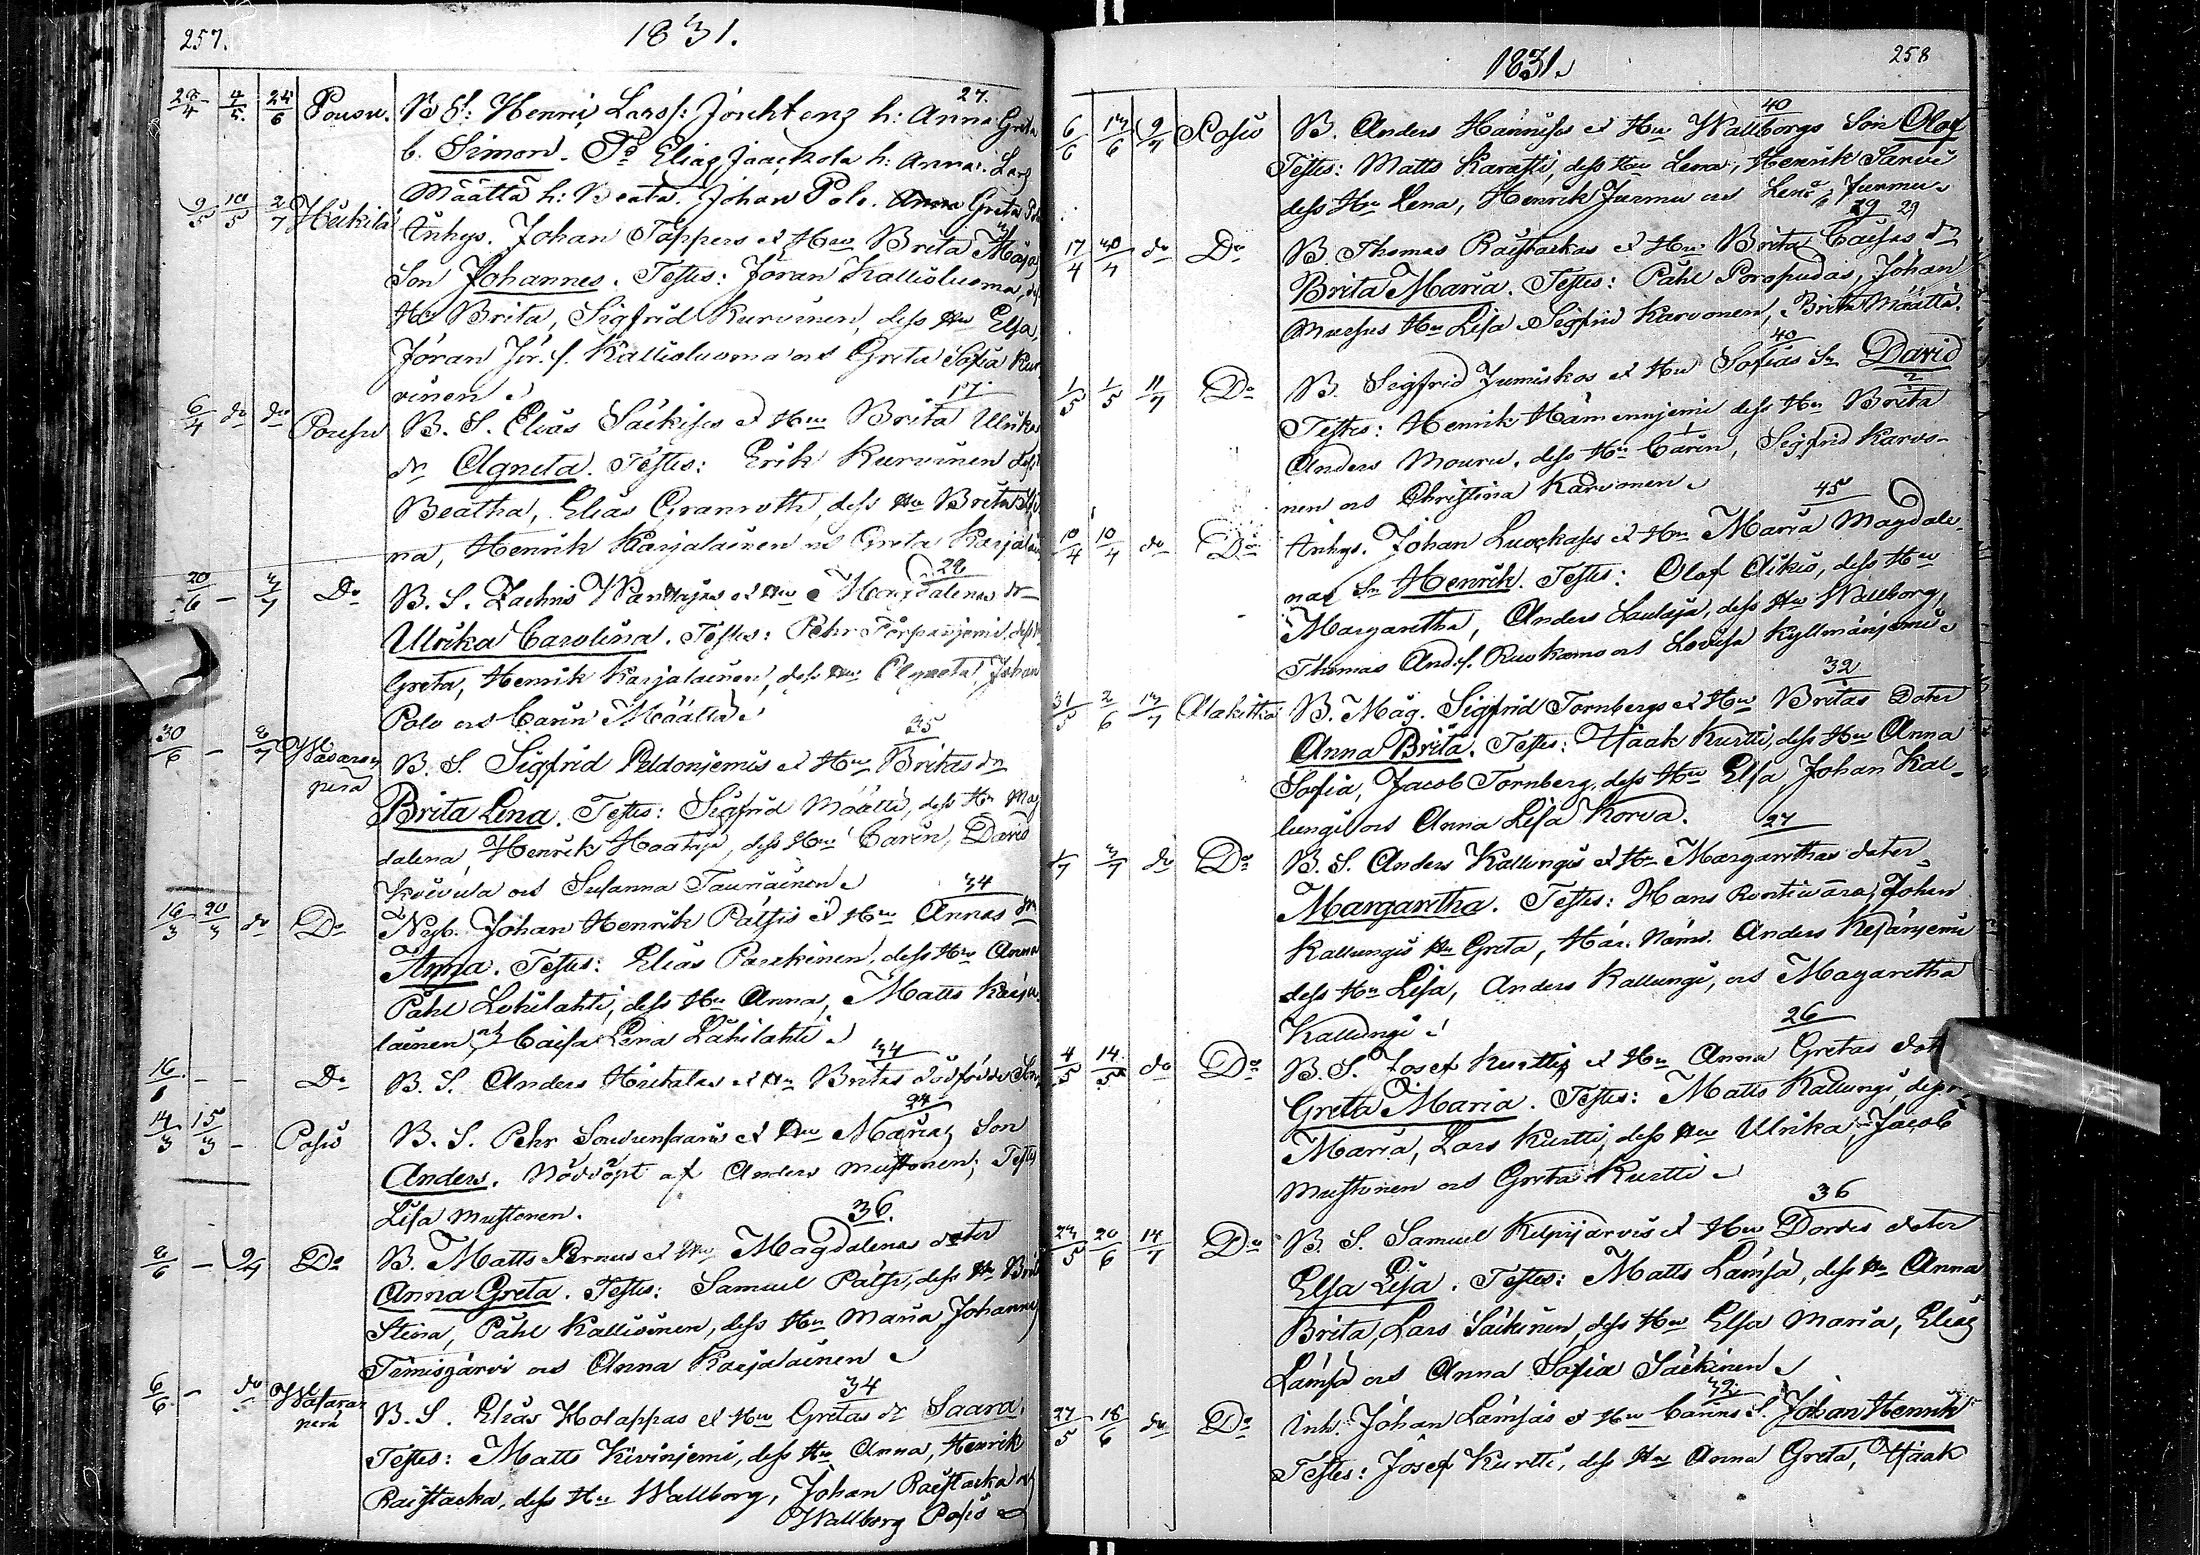 257.
1831.
27.
28/4 4/5 24/6 Posion. B S: Henric Larss: h: Anna Greta
b. Simon. To Elias Jaackola h: Anna. Lars
Määttä h: Beata. Johan Polo. Greta Polo
9/5 10/5 2/7 Heikilä Inhys. Johan Tappers et Hu Brita Majas
Son Johannes. Testes: Jöran Kallioluoma, dess
Hu Brita, Sigfrid Kurvinen, dess Hu Elsa,
Jöran Jör. s. Kallioluoma och Greta Sofia Kur
vinen.
17.
6/4 do do Posion B. S. Elias Säckises et Hu Brita Ulrikas
dr Agneta. Testes: Erik Kurvinen dess
Beatha, Elias Granroth, dess Hu Brita
na, Henrik Karjalainen och Greta Karjalai
28
20/6 – 3/7 Do B. S. Zachris et Hu Magdalenas dr
Ulrika Carolina. Testes: Pehr dess
Greta, Henrik Karjalainen, dess Hu Agneta, Johan
Polo och Carin Määttä
35
30/6 – 8/7 Wasaran B. S. Sigfrid Peldoniemis et Hu Britas dr
perä
Brita Lena. Testes: Sigfrid Määttä, dess Hu Mag
dalena Henrik Haataja, dess Hu Carin, David
Koivula och Susanna Taunainen
34
16/3 20/3 do Do Nyb. Johan Henrik Pätsis et Hu Annas dr
Anna. Testes: Elias Parkinen, dess Hu Anna
Påhl Lohilahti, dess Hu Anna, Matts Karja
lainen och Caisa Lena Lohilahti
34
16/1 – – Do B. S. Anders Hietalas et Hu Britas dödfödde Son
24
14/3 15/3 – Posio B. S. Pehr et Hu Marias Son
Anders. Nöddöpt af Anders Mustonen; Testes
Lisa Mustonen.
36.
8/6 – 9/7 Do B. Matts Pernus et Hu Magdalenas doter
Anna Greta. Testes: Samuel Pätsi, dess Hu Brita
Stina, Påhl Kallioinen, dess Hu Maria, Johannes
Timisjärvi och Anna Karjalainen
34
6/6 – do Wasaran B. S. Elias Holappas et Hu Gretas dr Saara.
perä
Testes: Matts Kivinjemi, dess Hu Anna, Henrik
Raistacka, dess Hu Wallborg, Johan Raistacka och
Wallborg Posio
1831.
258
40
6/6 13/6 9/7 Posio B. Anders et Hu Wallborgs Son Olof
Testes: Matts Karasti, dess Hu Lena, Henrik Sarvi
dess Hu Lena, Henrik Jurmu och Lena Jurmu
29 29
17/4 Do B. Thomas Raistackas et Hu Brita Caisas dr
Brita Maria. Testes: Påhl Porapudas, Johan
Hu Lisa Sigfrid Karvonen, Brita Määttä.
40
1/5 1/5 11/7 Do B. Sigfrid Jumiskos et Hu Sofias Sn David
Testes: Henrik Hämeenniemi dess Hu Brita
Anders Mouru, dess Hu Carin, Sigfrid Karvo-
nen och Christina Karvonen
45
10/4 10/4 do Do Inhys. Johan et Hu Maria Magdale-
nas Sn Henrik. Testes: Olof Aikio, dess Hu
Margaretha, Anders Lautaja, dess Hu Wallborg,
Thomas And.s. Ruokamo och Lovisa Kyllmäniemi
32
31/5 2/6 13/7 Alakitka B. Måg. Sigfrid Tornbergs et Hu Britas Doter
Anna Brita. Testes: Isaak Kurtti, dess Hu Anna
Sofia, Jacob Tornberg, dess Hu Elsa, Johan Kal-
lungi och Anna Lisa Korva.
27
1/7 3/7 do Do B. S. Anders Kallungis et Hu Margarethas doter
Margaretha. Testes: Hans Rontiwara, Johan
Kallungis Hu Greta, Här. Näms. Anders
dess Hu Lisa, Anders Kallungi, och Magaretha
Kallungi
26
4/5 14/5 do Do B. S. Josef Kurttis et Hu Anna Gretas dot
Greta Maria. Testes: Matts Kallungi, dess
Maria, Lars Kurtti, dess Hu Ulrika, Jacob
Mustonen och Greta Kurtti
36
23/5 20/6 14/7 Do B. S. Samuel Kilpijärvis et Hu Dordis doter
Elsa Lisa. Testes: Matts Lämsä, dess Hu Anna
Brita, Lars Säkinen, dess Hu Elsa Maria, Elias
Lämsä och Anna Sofia Säckinen
32
27/5 18/6 do Do Inh. Johan Lämsäs et Hu Carins S. Johan Henrik
Testes: Josef Kurtti, dess Hu Anna Greta, Isaak